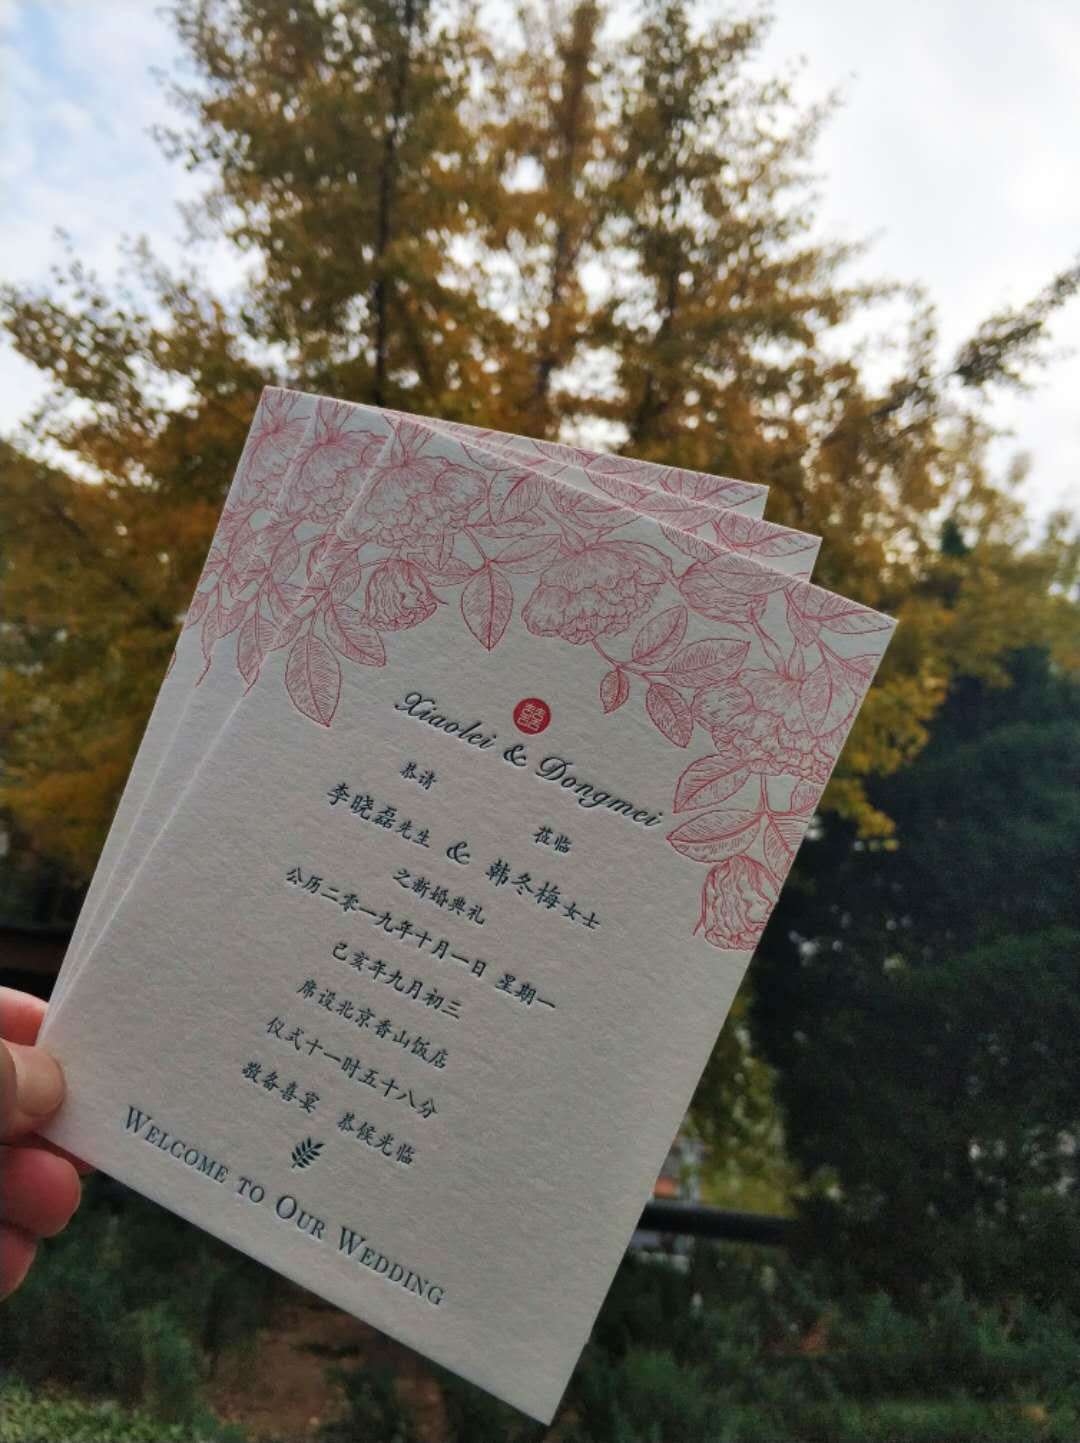 囍
Xiaolei & Dongmei
恭请
莅临
李晓磊先生 & 韩冬梅女士
之新婚典礼
公历二零一九年十月一日 星期一
已亥年九月初三
席设北京香山饭店
仪式十一时五十八分
敬备喜宴 恭候光临
WELCOME TO OUR WEDDING